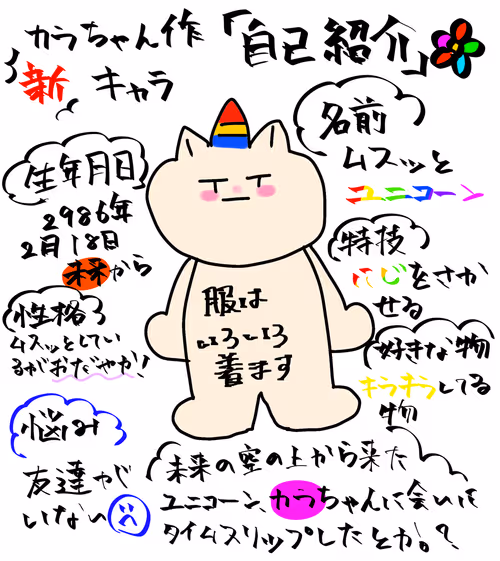 カラちゃん作「自己紹介」
新キャラ
名前
ムスッと
ユニコーン
生年月日
2986年
2月18日
未来から
特技
にじをさか
せる
性格
ムスッとしてい
るがおだやか!
服は
いろいろ
着ます
好きな物
キラキラしてる
物
悩み
友達が
いない
未来の空の上から来た
ユニコーン、カラちゃんに会いに
タイムスリップしたとか!?